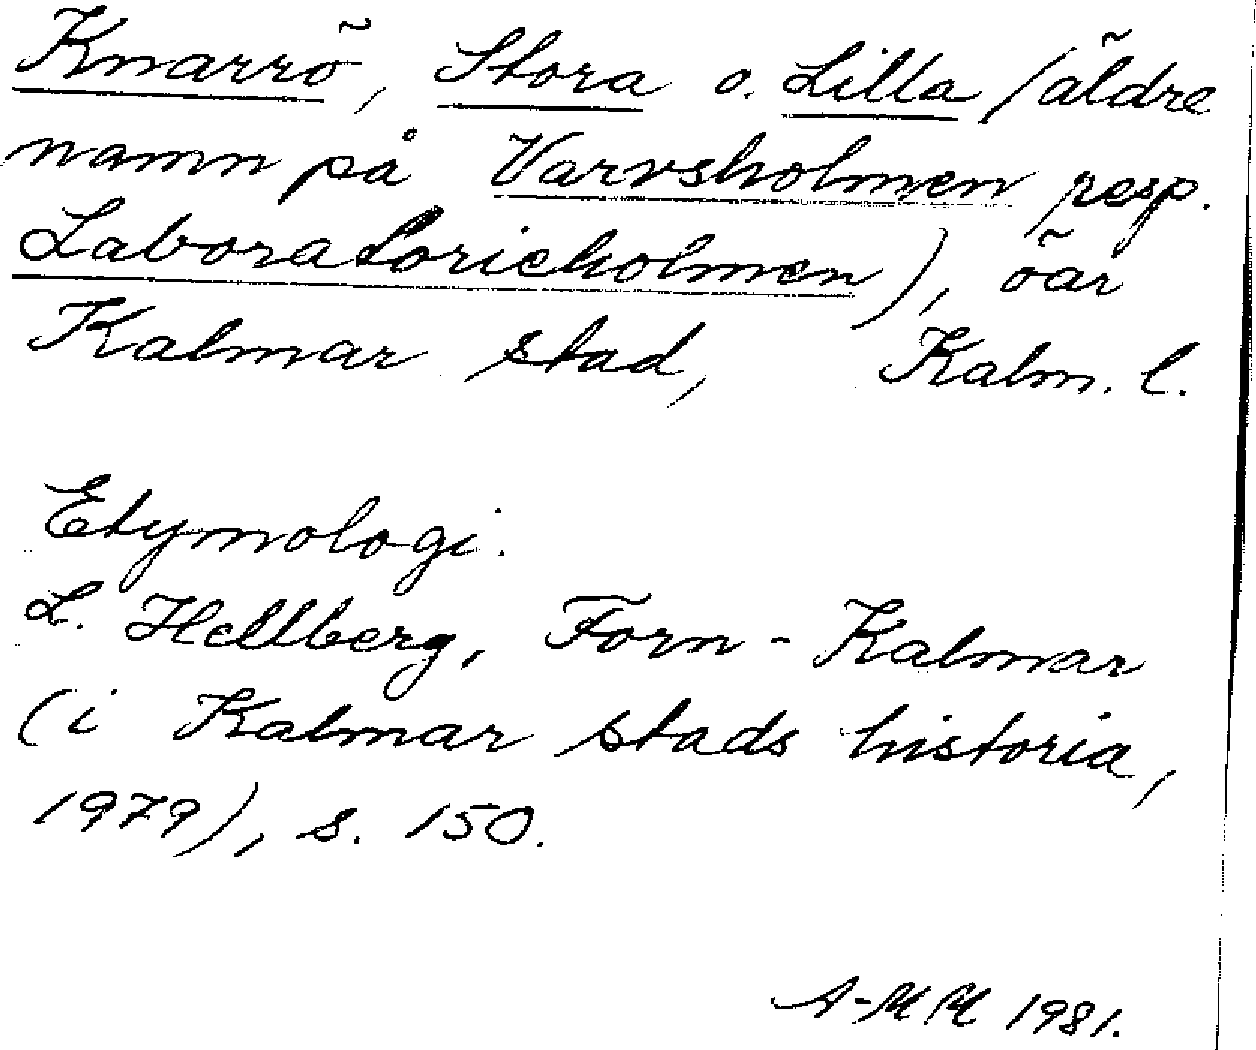 Knarrö, Stora o. Lilla (äldre
namn på Varvsholmen resp.
Laboratorieholmen), öar
Kalmar stad, Kalm. l.
Etymologi.
L. Hellberg, Forn-Kalmar
(i Kalmar stads historia,
1979), s. 150.
A-MM 1981.